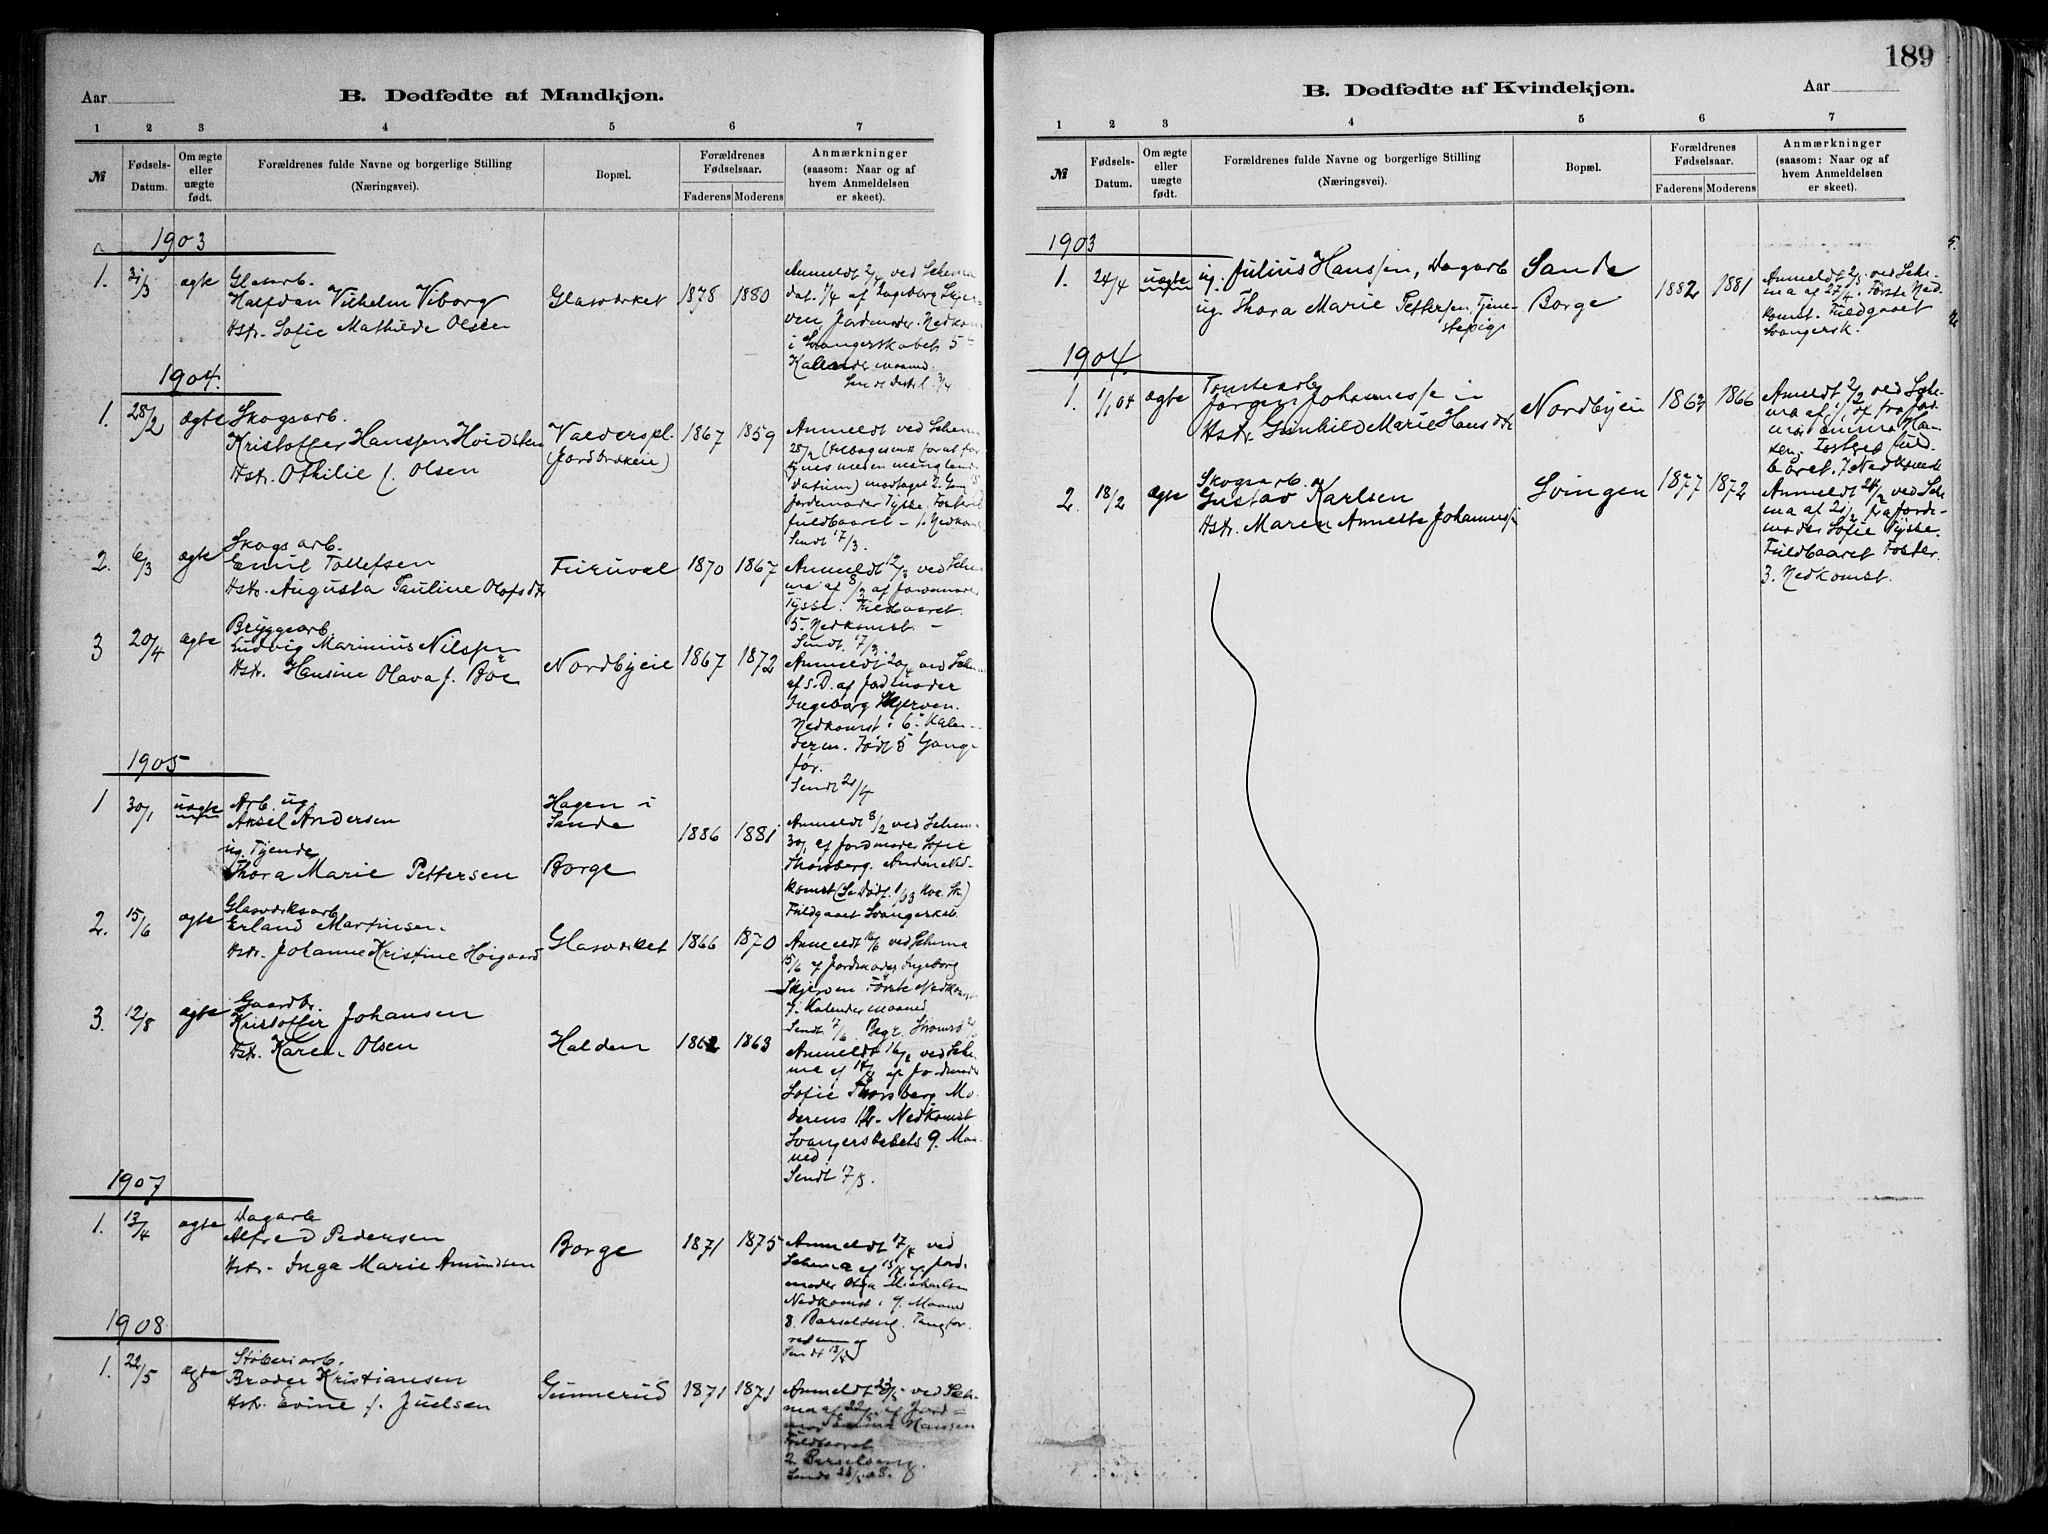 Aar
B. Dødfødte af Mandkjøn.
1 2 3 4 5 6 7
№
Fødsels-Datum.
Om ægte eller uægte født.
Forældrenes fulde Navne og borgerlige Stilling
(Næringsvei).
Bopæl.
Forældrenes Fødselsaar.
Faderens Moderens
Anmærkninger
(saasom: Naar og af
hvem Anmeldelsen
er skeet).
1903
1. 31/3 ægte Glasarb.
Halfdan Vilhelm Viborg
Hstr. Sofie Mathilde Olsen
Glasværket 1878 1880
Anmeldt 2/4 ved Schema
dat. 1/4 af Ingeborg Skjer-
ven, Jordmoder. Nedkom
i Svangerskabets 5te
Kalendermaaned.
1904.
1. 28/2 ægte Skogsarb.
Kristoffer Hanssen Hvidsten
Hstr. Othilie f. Olsen
Valderspl.
1867 1859
Anmeldt ved Schema
datum) modtaget
Jordemoder Tysse. Fosteret
fuldbaaret - 1. Nedkomst
Sendt 17/3.
2. 6/3 ægte Skogsarb.
Emil Tollefsen
Hstr. Augusta Pauline Olafsdtr
Furuval 1870 1867
Anmeldt 12/3 ved Sche-
ma af 8/3 af Jordemoder
Tysse. Fuldbaaret.
5. Nedkomst. -
Sendt 17/3.
3 20/4 ægte Bryggearb.
Ludvig Marinius Nilssen
Hstr. Hansine Olava f. Böe
Nordbyeie 1867 1872
Anmeldt 20/4 ved Schema
af S.D. af Jordmoder
Ingeborg Skjerven.
Nedkomst i 6. Kalen-
derm. Født 5 Gange
før.
Sendt 21/4
1905
1 30/1 uægte Arb. ug
Aksel Andersen
ug. Tjende
Thora Marie Pettersen
Hagen i
Sande
Borge
1886 1881
Anmeldt 8/2 ved Schema
30/1 af Jordmoder Sofie
Thorsberg. Anden Ned-
komst (Se Dødf. 1/03 Kv. Kj.)
Fuldgaaet Svangerskab.
2. 15/6 ægte Glasværksarb.
Erland Martinsen.
Hstr. Johanne Kristine Høigaard
Glasværket 1866 1870
Anmeldt 16/6 ved Schema
15/6 af Jordmoder Ingeborg
Skjerven. Første Nedkomst
7. Kalendermaaned
Sendt 17/6 Begr. Strømsø
3. 12/8 ægte Gaardbr.
Kristoffer Johansen
Hstr. Karen Olsen
Halden 1862 1863
Anmeldt 16/8 ved Sche-
ma af 14/8 af Jordmoder
Sofie Thorsberg Mo-
derens 12. Nedkomst
Svangerskabets 9. Maa-
ned.
Sendt 17/8.
1907
1. 13/4 ægte Dagarb.
Alfred Pedersen
Hstr. Inga Marie Amundsen
Borge 1871 1875
Anmeldt 17/4 ved
Schema af 15/4 af Jord-
moder Olga Michaelsen
Nedkomst i 9. Maaned
8. Barselseng. Tangfor-
Sendt 18/4
1908
1. 22/5 ægte Støberiarb.
Brader Kristiansen
Hstr. Evine f. Juelsen
Gunnerud 1871 1871
Anmeldt 23/5 ved Sche-
ma af 22/5 af Jord-
Hansen
Fuldbaaret
2 Barselseng.
189
B. Dødfødte af Kvindekjøn.
Aar
1 2 3 4 5 6 7
№
Fødsels-Datum.
Om ægte eller uægte født.
Forældrenes fulde Navne og borgerlige Stilling
(Næringsvei).
Bopæl.
Forældrenes Fødselsaar.
Faderens Moderens
Anmærkninger
(saasom: Naar og af
hvem Anmeldelsen
er skeet).
1903
1. 24/4 uægte ug. Julius Hanssen, Dagarb
ug. Thora Marie Pettersen, Tjene-
stepige
Sande
Borge
1882 1881
Anmeldt 2/5 ved Sche-
ma af 27/4. Første Ned-
komst. Fuldgaaet
Svangersk.
1904.
1. 1/1 04 ægte Tomtearb
Jørgen Johannessen
Hstr. Gunhild Marie Hansdtr
Nordbyeie 1867 1866
Anmeldt 2/2 ved Sche-
ma af 1/1 04 fra Jord-
mor Emma Han-
sen. Fostret fuld-
baaret. 7 Nedkomst
2. 18/2 ægte Skogsarb.
Gustav Karlsen
Hstr. Maren Annette Johannessen
Svingen 1877 1872
Anmeldt 24/2 ved Sche-
ma af 21/2 fra Jorde-
moder Sofie Tysse.
Fuldbaaret Foster.
3. Nedkomst.